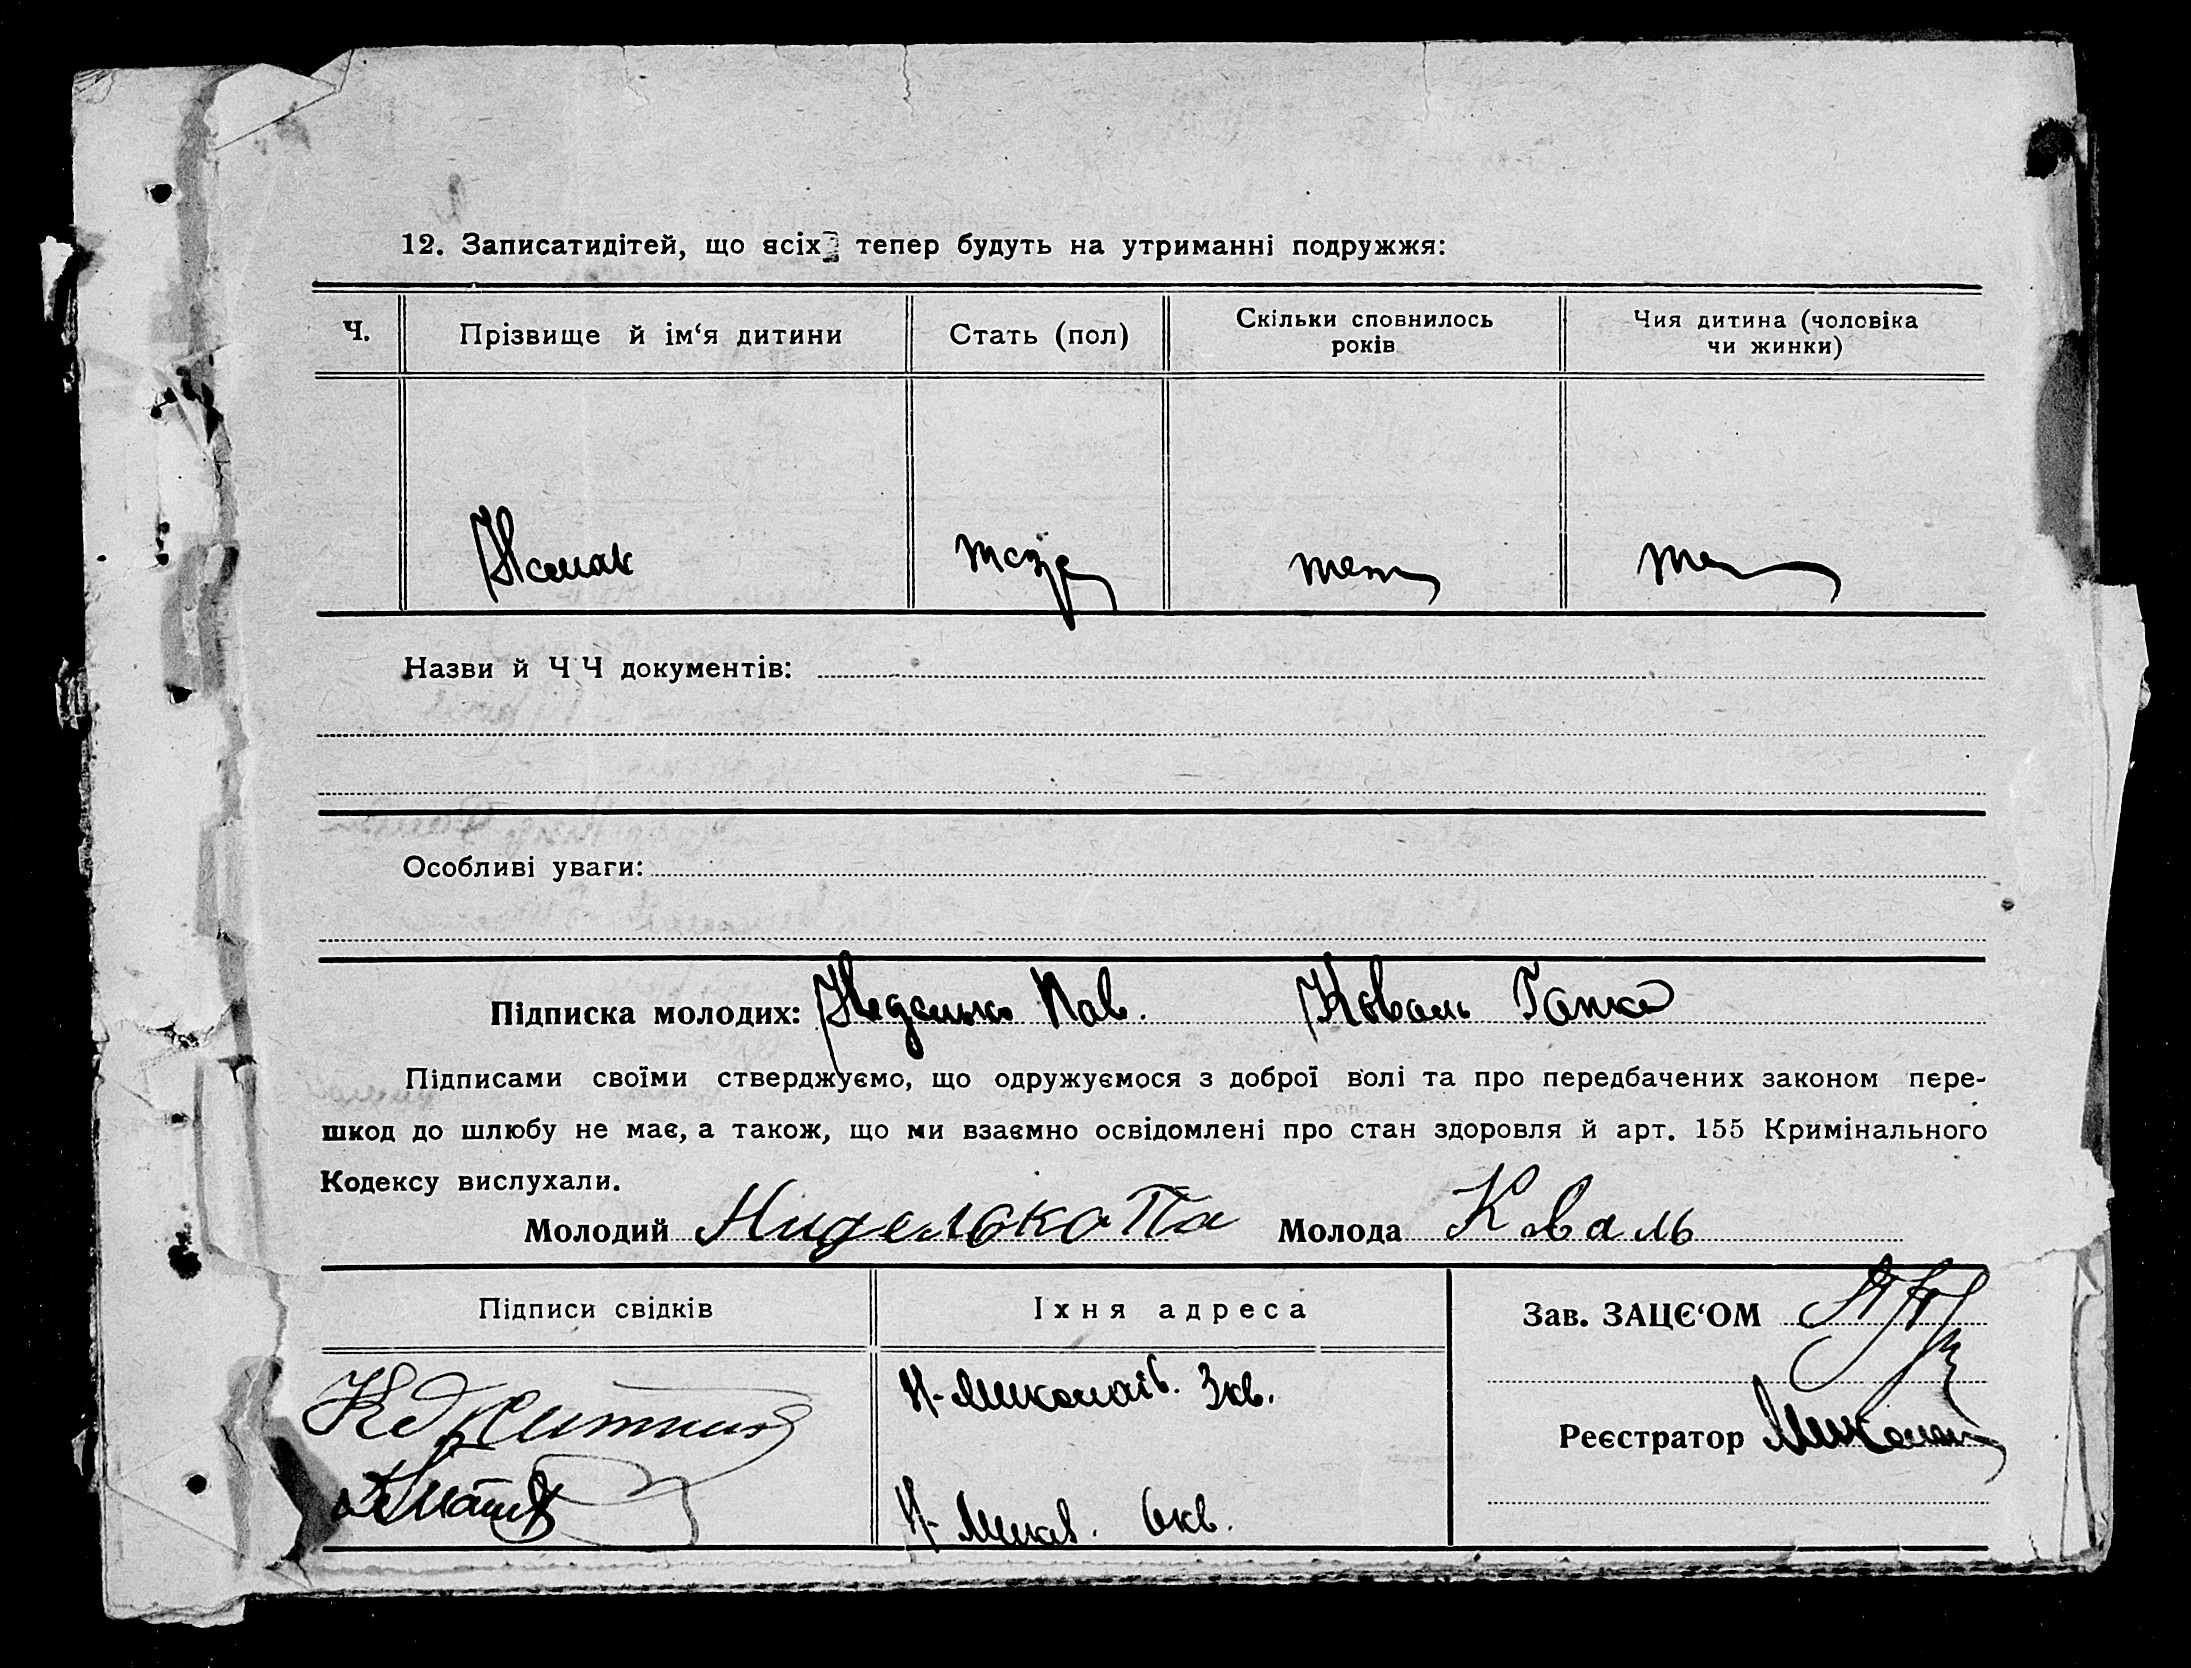 12. Записатидітей, що всіх тепер будуть на утриманні подружжя:
Ч.
Прізвище й ім‘я дитини
Стать (пол)
Скільки сповнилось
років
Чия дитина (чоловіка
чи жинки)
Немає
Назви й Ч Ч документів:
Особливі уваги:
Підписка молодих: Неделько Пав. Коваль Гапка
Підписами своїми стверджуємо, що одружуємося з доброї волі та про передбачених законом пере-
шкод до шлюбу не має, а також, що ми взаємно освідомлені про стан здоровля й арт. 155 Кримінального
Кодексу вислухали.
Молодий Ниделько Па Молода Коваль
Підписи свідків
Іхня адреса
Зав. ЗАЦЄ‘ОМ
Н-Миколаїв. 3кв.
Реєстратор
Н-Микол. 6кв.